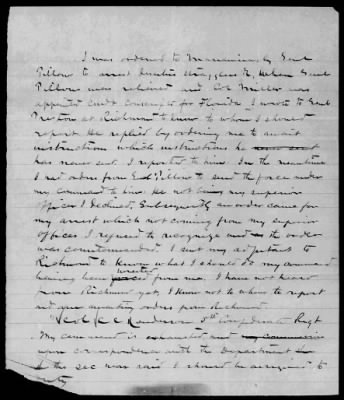 I was ordered to Marianna by Genl
Pillow to arrest deserters stragglers &c. When Genl
Pillow was relieved and Col Miller was
appointed Comdt Conscripts for Florida I wrote to Genl
Preston at Richmond to know to whom I should
report. He replied by ordering me to await
instructions which instructions he
has never sent. I reported to him. In the meantime
I recd orders from Genl Pillow to send the force under
my command to him. He not being my superior
officer I declined, Subsequently an order came for
my arrest which not coming from my superior
officer I refused to recognize and the order
was countermanded. I sent my adjutant to
Richmond to know what I should do my command
having been from me. I have not heard
from Richmond yet, I know not to whom to report
and am awaiting orders from Richmond.
5th Confederate Regt
My command is exhausted and
upon correspondence with the Department
the sec war said I should be assigned to
duty